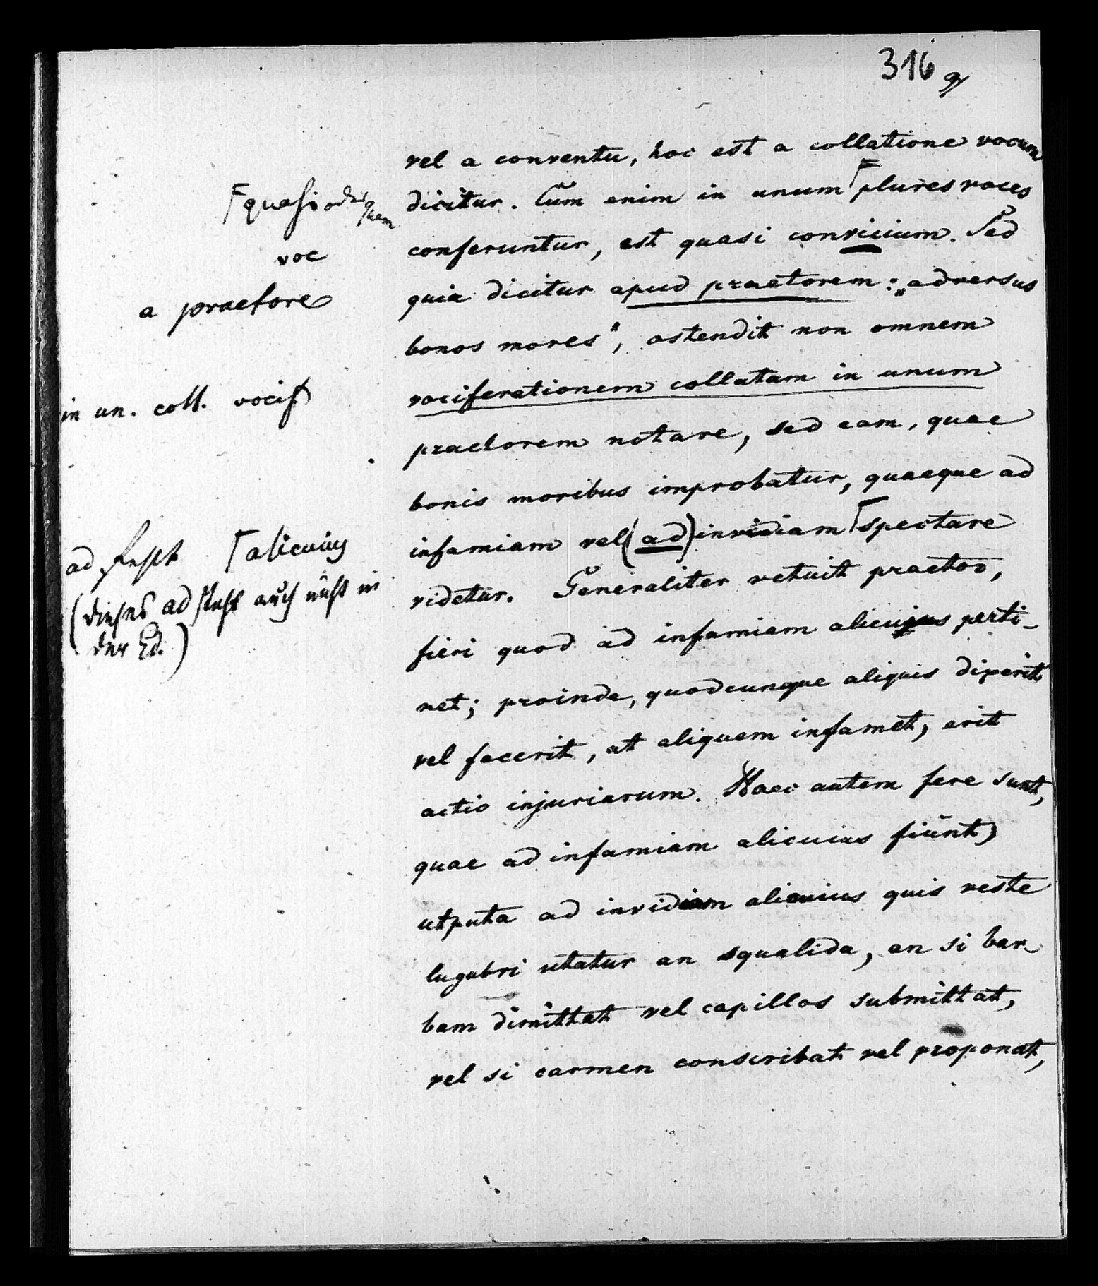 316
rel a conventu, hoc est a collatione vocum
dicitur. Cum enim in unum ⌈plures voces
conferuntur, est quasi convicium. Sed
quia dicitur apud praetorem: „adversus
bonos mores“, ostendit non omnem
vociferationem collatam in unum
praetorem notare, sed eam, quae
bonis moribus improbatur, quaeque ad
infamiam vel (ad) invidiam ⌈spectare
videtur. Generaliter vetuit praetor,
fieri quod ad infamiam alicujus perti-
net; proinde, quodcunque aliquis dixerit
vel fecerit, ut aliquem infamet, erit
actio injuriarum. Haec autem fere sunt,
quae ad infamiam alicuius fiunt,
utputa ad invidiam alicuius quis veste
lugubri utatur an squalida, an si bar
bam dimittat vel capillos submittat,
vel si carmen conscribat vel proponat,
⌈quasi
voc
a praetore
in un. coll. vocif
ad fehlt ⌈alicuius
(dieses ad steht auch nicht in
der Ed.)